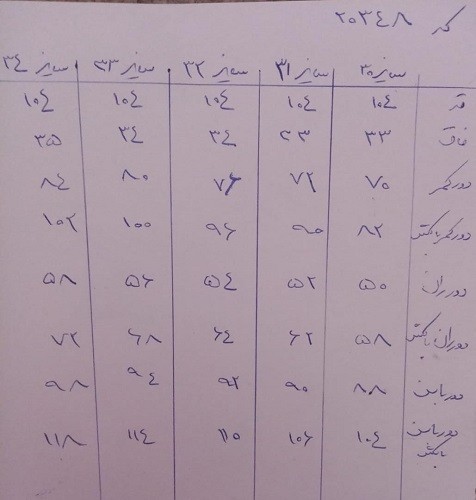 کد ۲۰۳۴۸
سایز ۳۰ سایز ۳۱ سایز ۳۲ سایز ۳۳ سایز ۳۴
قد ۱۰۴ ۱۰۴ ۱۰۴ ۱۰۴ ۱۰۴
فاق ۳۳ ۳۳ ۳۴ ۳۴ ۳۵
دور کمر ۷۰ ۷۲ ۷۶ ۸۰ ۸۴
دور کمر با کش ۸۲ ۹۰ ۹۶ ۱۰۰ ۱۰۲
دور ران ۵۰ ۵۲ ۵۴ ۵۶ ۵۸
دور ران با کش ۵۸ ۶۲ ۶۴ ۶۸ ۷۲
دور باسن ۸۸ ۹۰ ۹۲ ۹۴ ۹۸
دور باسن با کش ۱۰۴ ۱۰۶ ۱۱۰ ۱۱۴ ۱۱۸